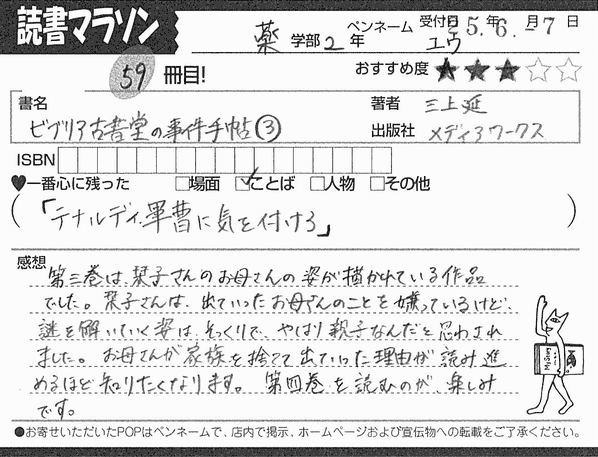 読書マラソン
薬 学部 2 年 ペンネーム ユウ 受付日 5年 6月-7日
59 冊目! おすすめ度 ★★★☆☆
書名 著者 三上延
ビブリア古書堂の事件手帖③ 出版社 メディアワークス
ISBN
♥一番心に残った □場面 ☑ことば □人物 □その他
(「テナルディ軍曹に気を付けろ」)
感想
第三巻は、栞子さんのお母さんの姿が描かれている作品
でした。栞子さんは、出ていったお母さんのことを嫌っているけど、
謎を解いていく姿は、そっくりで、やはり親子なんだと思わされ
ました。お母さんが家族を捨てて出ていった理由が読み進
めるほど知りたくなります。第四巻を読むのが、楽しみ
です。
●お寄せいただいたPOPはペンネームで、店内で掲示、ホームページおよび宣伝物への転載をご了承ください。